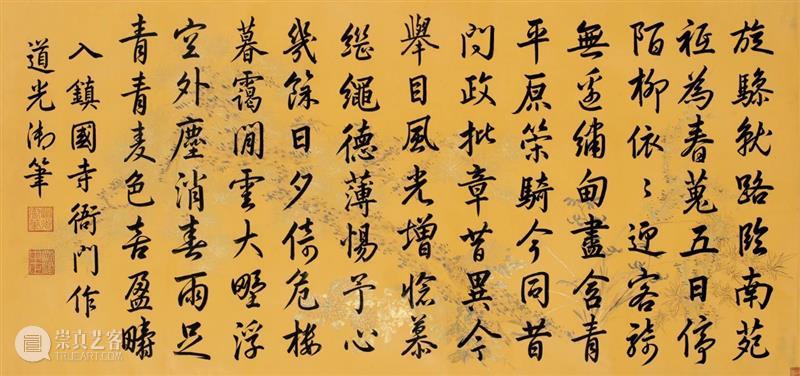 旋驂就路臨南苑
祇為春蒐五日停
陌柳依〻迎客騎
無邊繡甸盡含青
平原策騎今同昔
問政批章昔異今
舉目風光增慕
繼繩德薄惕予心
幾餘日夕倚危樓
暮靄閒雲大野浮
空外塵消春雨足
青青麦色喜盈疇
入鎮國寺衙門作
道光御筆
崇真艺客
TRUEART.COM